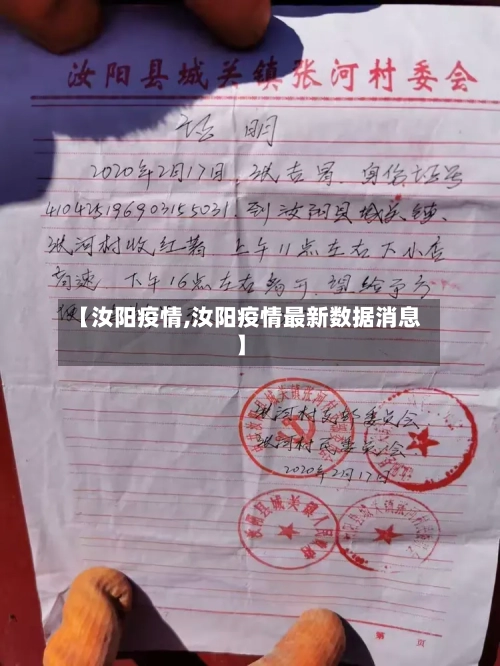 汝阳县城关镇张河村委会
证明
2020年2月17日,张吉 身份证号
410425196903155031.到汝阳县城关镇、
张河村收红薯 上午11点左右下小店
高速 下午16点左右 可.望给予方
【汝阳疫情,汝阳疫情最新数据消息
】
张河村支部委员会
张河村民委员会
2020年2月17日
第 页